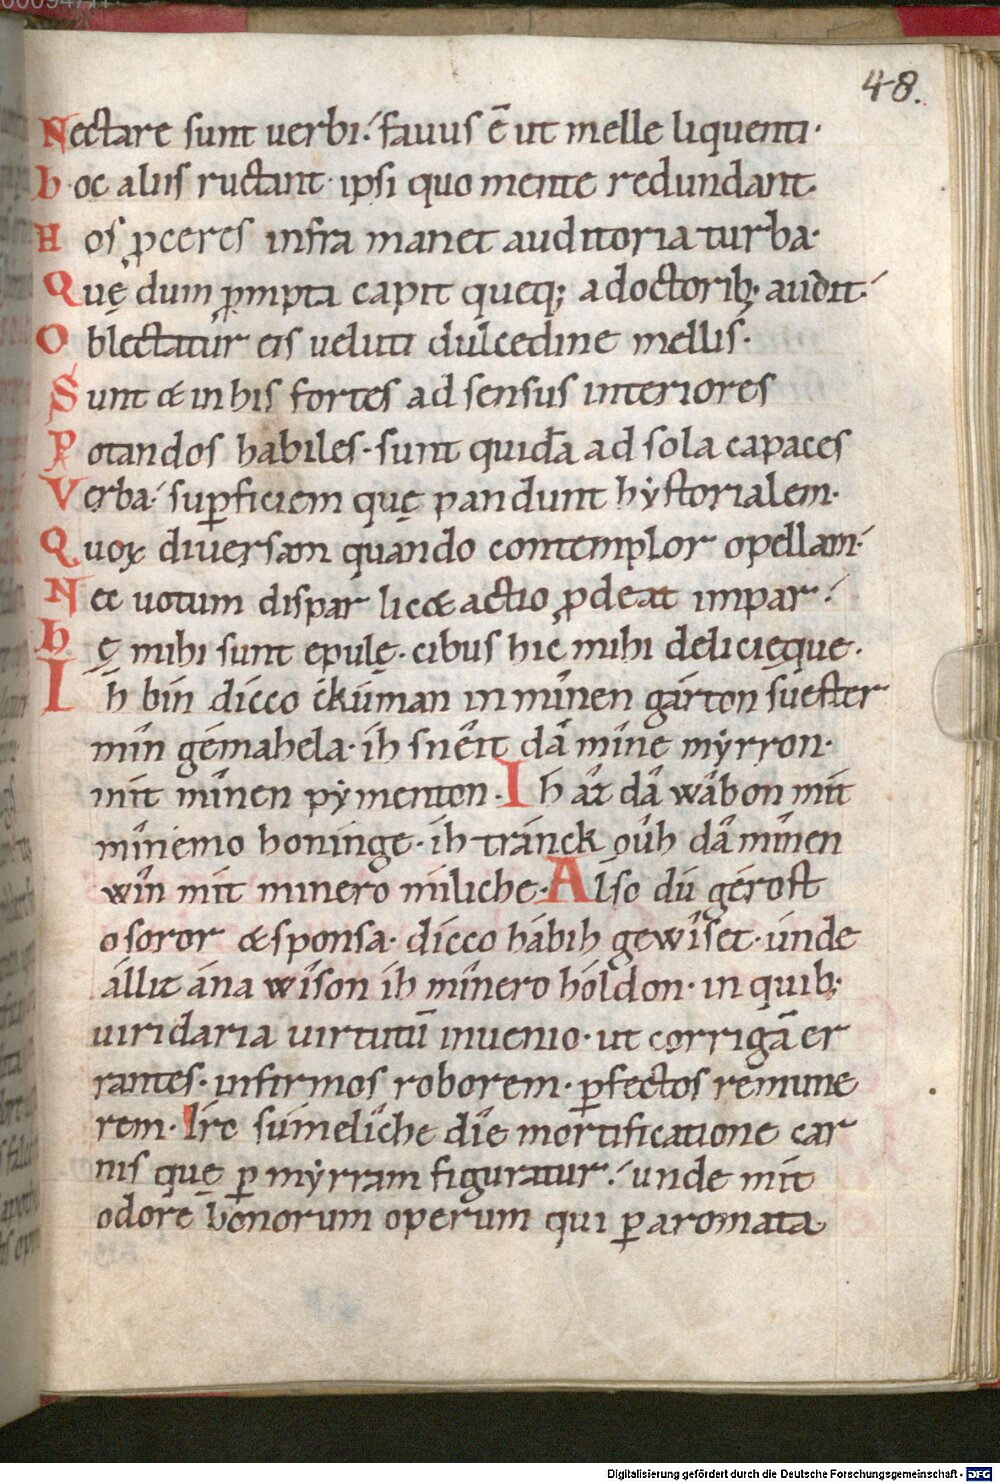 48.
Nectare sunt uerbi: fauus ē ut melle liquenti·
hoc aliis ructant· ipsi quo mente redundant.
Hos ꝓceres infra manet auditoria turba·
Quę dum ꝓmpta capit queq; a doctorib; audit:
Oblectatur eis ueluti dulcedine mellis·
Sunt & in his fortes ad sensus interiores
Potandos habiles· sunt quidā ad sola capaces
Verba: suꝑficiem quę pandunt hẏstorialem·
Quoꝝ diuersam quando contemplor opellam:
Nec uotum dispar lic& actio ꝓdeat impar:
hę mihi sunt epulę· cibus hic mihi delicięque·
Ih bín dícco ckúman in mînen gárton súester
mîn gémahela· ih snêit dâ mîne mẏrron·
mit mînen pẏmenton· Ih ấz dâ wâbon mít
mînemo honinge· ih tránck oûh dâ mînen
wîn mít mînero míliche· Álso dû gérost
o soror & sponsa· dícco hábih gewîset· únde
állit ána wîson ih mînero hóldon· in quib;
uiridaria uirtutū inuenio· ut corrigā er
rantes· infirmos roborem· ꝑfectos remune
rem· Íro súmelîche dîe mortificatione car
nis quę ꝑ mẏrram figuratur: unde mít
odore bonorum operum qui ꝑ aromata
Digitalisierung gefördert durch die Deutsche Forschungsgemeinschaft - DFG